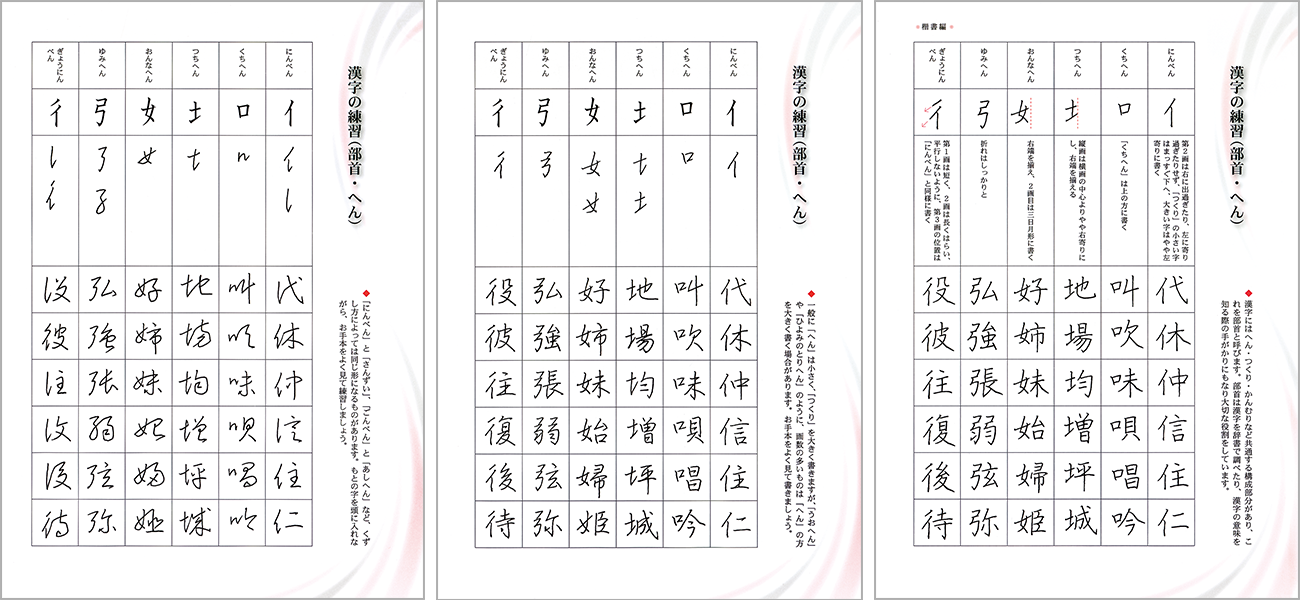 楷書編
漢字の練習(部首・へん)
◆漢字にはへん・つくり・かんむりなど共通する構成部分があり、こ
れを部首と呼びます。部首は漢字を辞書で調べたり、漢字の意味を
知る際の手がかりにもなり大切な役割をしています。
にんべん
亻
第2画は右に出過ぎたり、左に寄り
過ぎたりせず、「つくり」の小さい字
はまっすぐ下へ、大きい字はやや左
寄りに書く
代休仲信住仁
くちへん
口
「くちへん」は上の方に書く
叫吹味唄唱吟
つちへん
土
縦画は横画の中心よりやや右寄りに
し、右端を揃える
地場均増坪城
おんなへん
女
右端を揃え、2画目は三日月形に書く
好姉妹始婦姫
ゆみへん
弓
折れはしっかりと
弘強張弱弦弥
ぎょうにん
べん
彳
第1画は短く、2画は長くはらい、
平行しないように。第3画の位置は
「にんべん」と同様に書く
役彼往復後待
漢字の練習(部首・へん)
◆一般に「へん」は小さく、「つくり」を大きく書きますが、「うおへん」
や「ひよみのとりへん」のように、画数の多いものは「へん」の方
を大きく書く場合があります。お手本をよく見て書きましょう。
にんべん
亻
亻
代休仲信住仁
くちへん
口
口
叫吹味唄唱吟
つちへん
土
土
土
地場均増坪城
おんなへん
女
女
女
好姉妹始婦姫
ゆみへん
弓
弓
弘強張弱弦弥
ぎょうにん
べん
彳
彳
役彼往復後待
漢字の練習(部首・へん)
◆「にんべん」と「さんずい」、「ごんべん」と「あしへん」など、くず
し方によっては同じ形になるものがあります。もとの字を頭に入れな
がら、お手本をよく見て練習しましょう。
にんべん
亻
代休仲信住仁
くちへん
口
叫吹味唄唱吟
つちへん
土
地場均増坪城
おんなへん
女
好姉妹始婦姫
ゆみへん
弓
弘強張弱弦弥
ぎょうにん
べん
彳
役彼往復後待